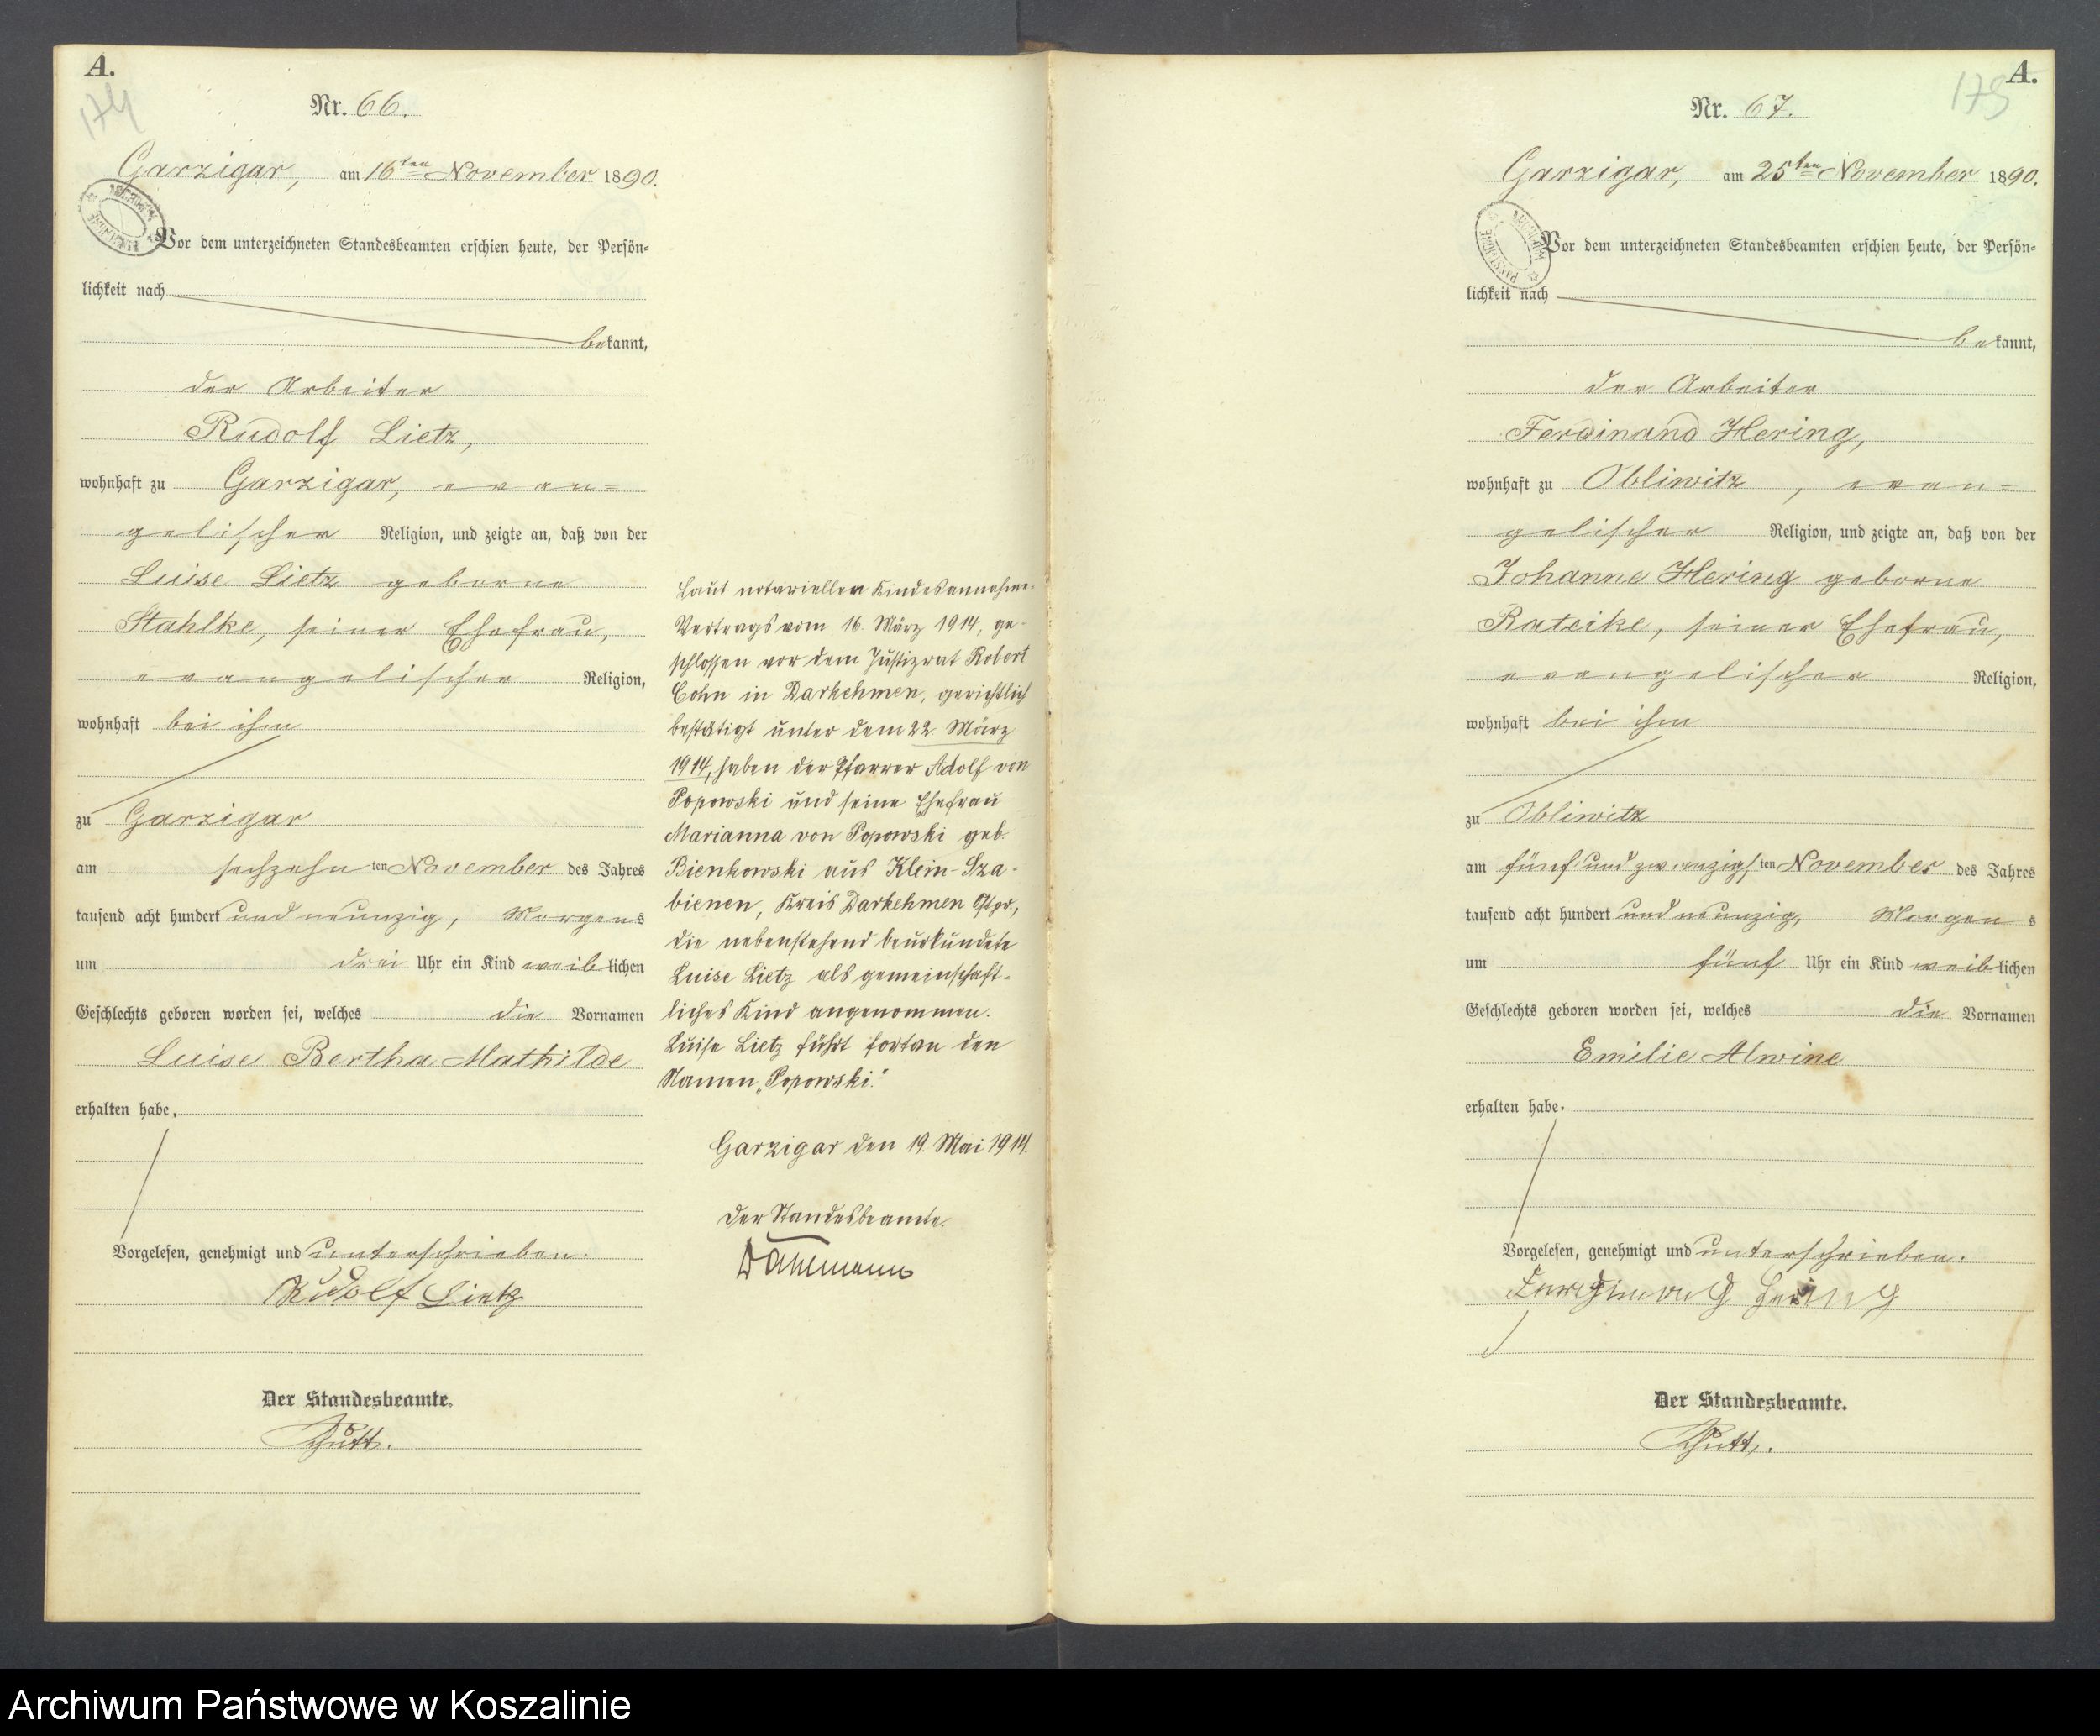 A.
174
Nr. 66.
Garzigar, am 16ten November 1890.
Vor dem unterzeichneten Standesbeamten erschien heute, der Persön-
lichkeit nach
bekannt,
der Arbeiter
Rudolf Lietz,
wohnhaft zu Garzigar, evan-
gelischer Religion, und zeigte an, daß von der
Luise Lietz geborne
Stahlke, seiner Ehefrau,
evangelischer Religion,
wohnhaft bei ihm
zu Garzigar
am sechzehnten November des Jahres
tausend acht hundert und neunzig, Morgens
um drei Uhr ein Kind weiblichen
Geschlechts geboren worden sei, welches die Vornamen
Luise Bertha Mathilde
erhalten habe.
Vorgelesen, genehmigt und unterschrieben.
Rudolf Lietz
Der Standesbeamte.
Laut notariellen Kindesannahme-
Vertrags vom 16. März 1914, ge-
schlossen vor dem Justizrat Robert
Cohn in Darkehmen, gerichtlich
bestätigt unter dem 22. März
1914, haben der Pfarrer Adolf von
Popowski und seine Ehefrau
Marianna von Popowski geb.
Bienkowski aus Klein-Sza-
bienen, Kreis Darkehmen Ostpr.,
die nebenstehend beurkundete
Luise Lietz als gemeinschaft-
liches Kind angenommen.
Luise Lietz führt fortan den
Namen „Popowski."
Garzigar den 19. Mai 1914.
Der Standesbeamte.
A.
175
Nr. 67.
Garzigar, am 25ten November 1890.
Vor dem unterzeichneten Standesbeamten erschien heute, der Persön-
lichkeit nach
bekannt,
der Arbeiter
Ferdinand Hering,
wohnhaft zu Obliwitz, evan-
gelischer Religion, und zeigte an, daß von der
Johanne Hering geborne
Rateike, seiner Ehefrau,
evangelischer Religion,
wohnhaft bei ihm
zu Obliwitz
am fünf und zwanzigsten November des Jahres
tausend acht hundert und neunzig, Morgens
um fünf Uhr ein Kind weiblichen
Geschlechts geboren worden sei, welches die Vornamen
Emilie Alwine
erhalten habe.
Vorgelesen, genehmigt und unterschrieben.
Ferdinand Hering
Der Standesbeamte.
Archiwum Państwowe w Koszalinie